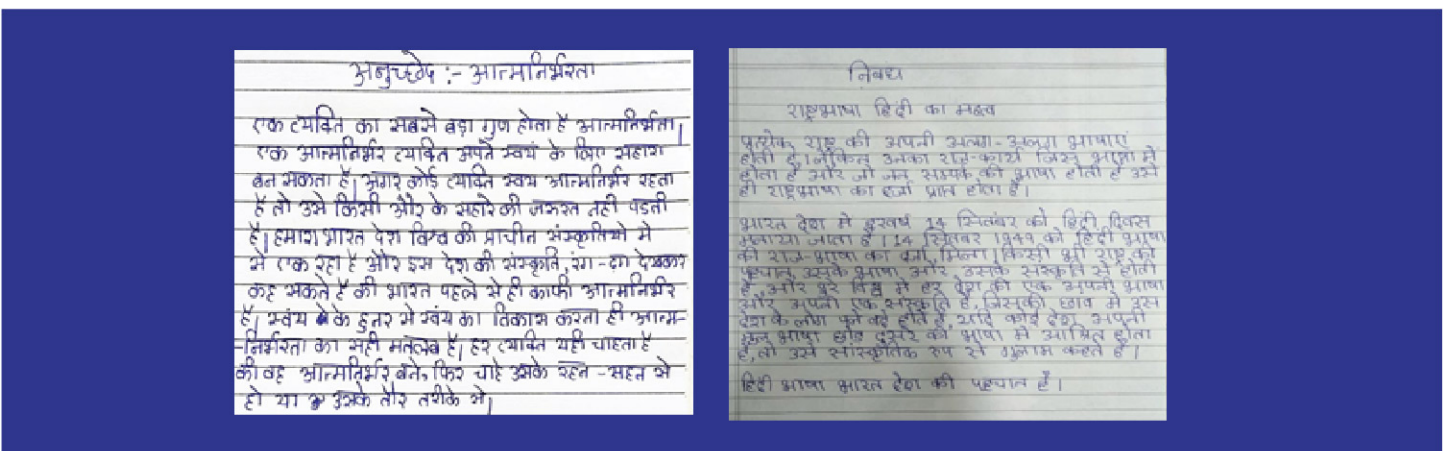 अनुच्छेद :- आत्मनिर्भरता
एक व्यक्ति का सबसे बड़ा गुण होता है आत्मनिर्भता।
एक आत्मनिर्भर व्यक्ति अपने स्वयं के लिए सहारा
बन सकता है। अगर कोई व्यक्ति स्वयं आत्मनिर्भर रहता
है तो उसे किसी और के सहारे की जरूरत नही पडती
है। हमारा भारत देश विश्व की प्राचीन संस्कृतिओ मे
से एक रहा है और इस देश की संस्कृति, रंग-ढंग देखकर
कह सकते है की भारत पहले से ही काफी आत्मनिर्भर
है। स्वंय के हुनर से स्वंय का विकास करना ही आत्म-
-निर्भरता का सही मतलब है। हर व्यक्ति यही चाहता है
की वह आत्मनिर्भर बने, फिर चाहे उसके रहन-सहन से
हो या उसके तौर तरीके से।
निबंध
राष्ट्रभाषा हिंदी का महत्व
प्रत्येक राष्ट्र की अपनी अलग-अलग भाषाएं
होती है। लेकिन उनका राज-कार्य जिस भाषा मे
होता है और जो जन सम्पर्क की भाषा होती है उसे
ही राष्ट्रभाषा का दर्जा प्राप्त होता है।
भारत देश मे हरवर्ष 14 सितंबर को हिंदी दिवस
मनाया जाता है। 14 सितंबर 1949 को हिंदी भाषा
को राज-भाषा का दर्जा मिला। किसी भी राष्ट्र की
पहचान उसके भाषा और उसके संस्कृति से होती
है, और पुरे विश्व मे हर देश की एक अपनी भाषा
और अपनी एक संस्कृति है, जिसकी छाव मे उस
देश के लोग पले बड़े होते है, यदि कोई देश अपनी
मूल भाषा छोड़ दुसरे की भाषा मे आश्रित होता
है, तो उसे सांस्कृतिक रुप से गुलाम कहते है।
हिंदी भाषा भारत देश की पहचान है।